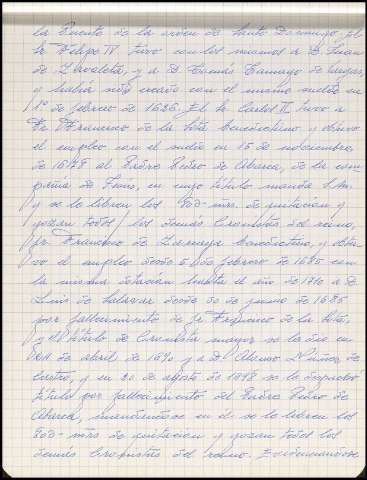 la Puente de la orden de Santo Domingo. El
Sr. Felipe IV tuvo con los mismos a D. Juan
de Zavaleta, y a D. Tomás Tamayo de Vargas,
y había sido creado con el mismo sueldo en
1º de febrero de 1626. El Sr. Carlos II tuvo a
Fr. Francisco de la Sota Benedictino y obtuvo
el empleo con el sueldo en 15 de noviembre
de 16 8 al Padre Pedro de Abarca, de la com-
pañía de Jesús, en cuyo título manda S.M.
y se le libren los mrs. de quitación y
gozan todos los demás Cronistas del reino,
fr. Francisco de Benedictino, y obtu-
vo el empleo desde 5 de febrero de 1685 con
la misma dotación hasta el año de 1710 a D.
Luis de Salazar desde 30 de junio de 1685
por fallecimiento de fr. Francisco de la Sota,
y el título de Cronista mayor se le dio en
de abril de 1690 y a D. Alonso Núñez de
Castro, y en 20 de agosto de 1698 se le despachó
título por fallecimiento del Padre Pedro de
Abarca, mandándose en él se le libren los
mrs de quitación y gozan todos los
demás Cronistas del reino.